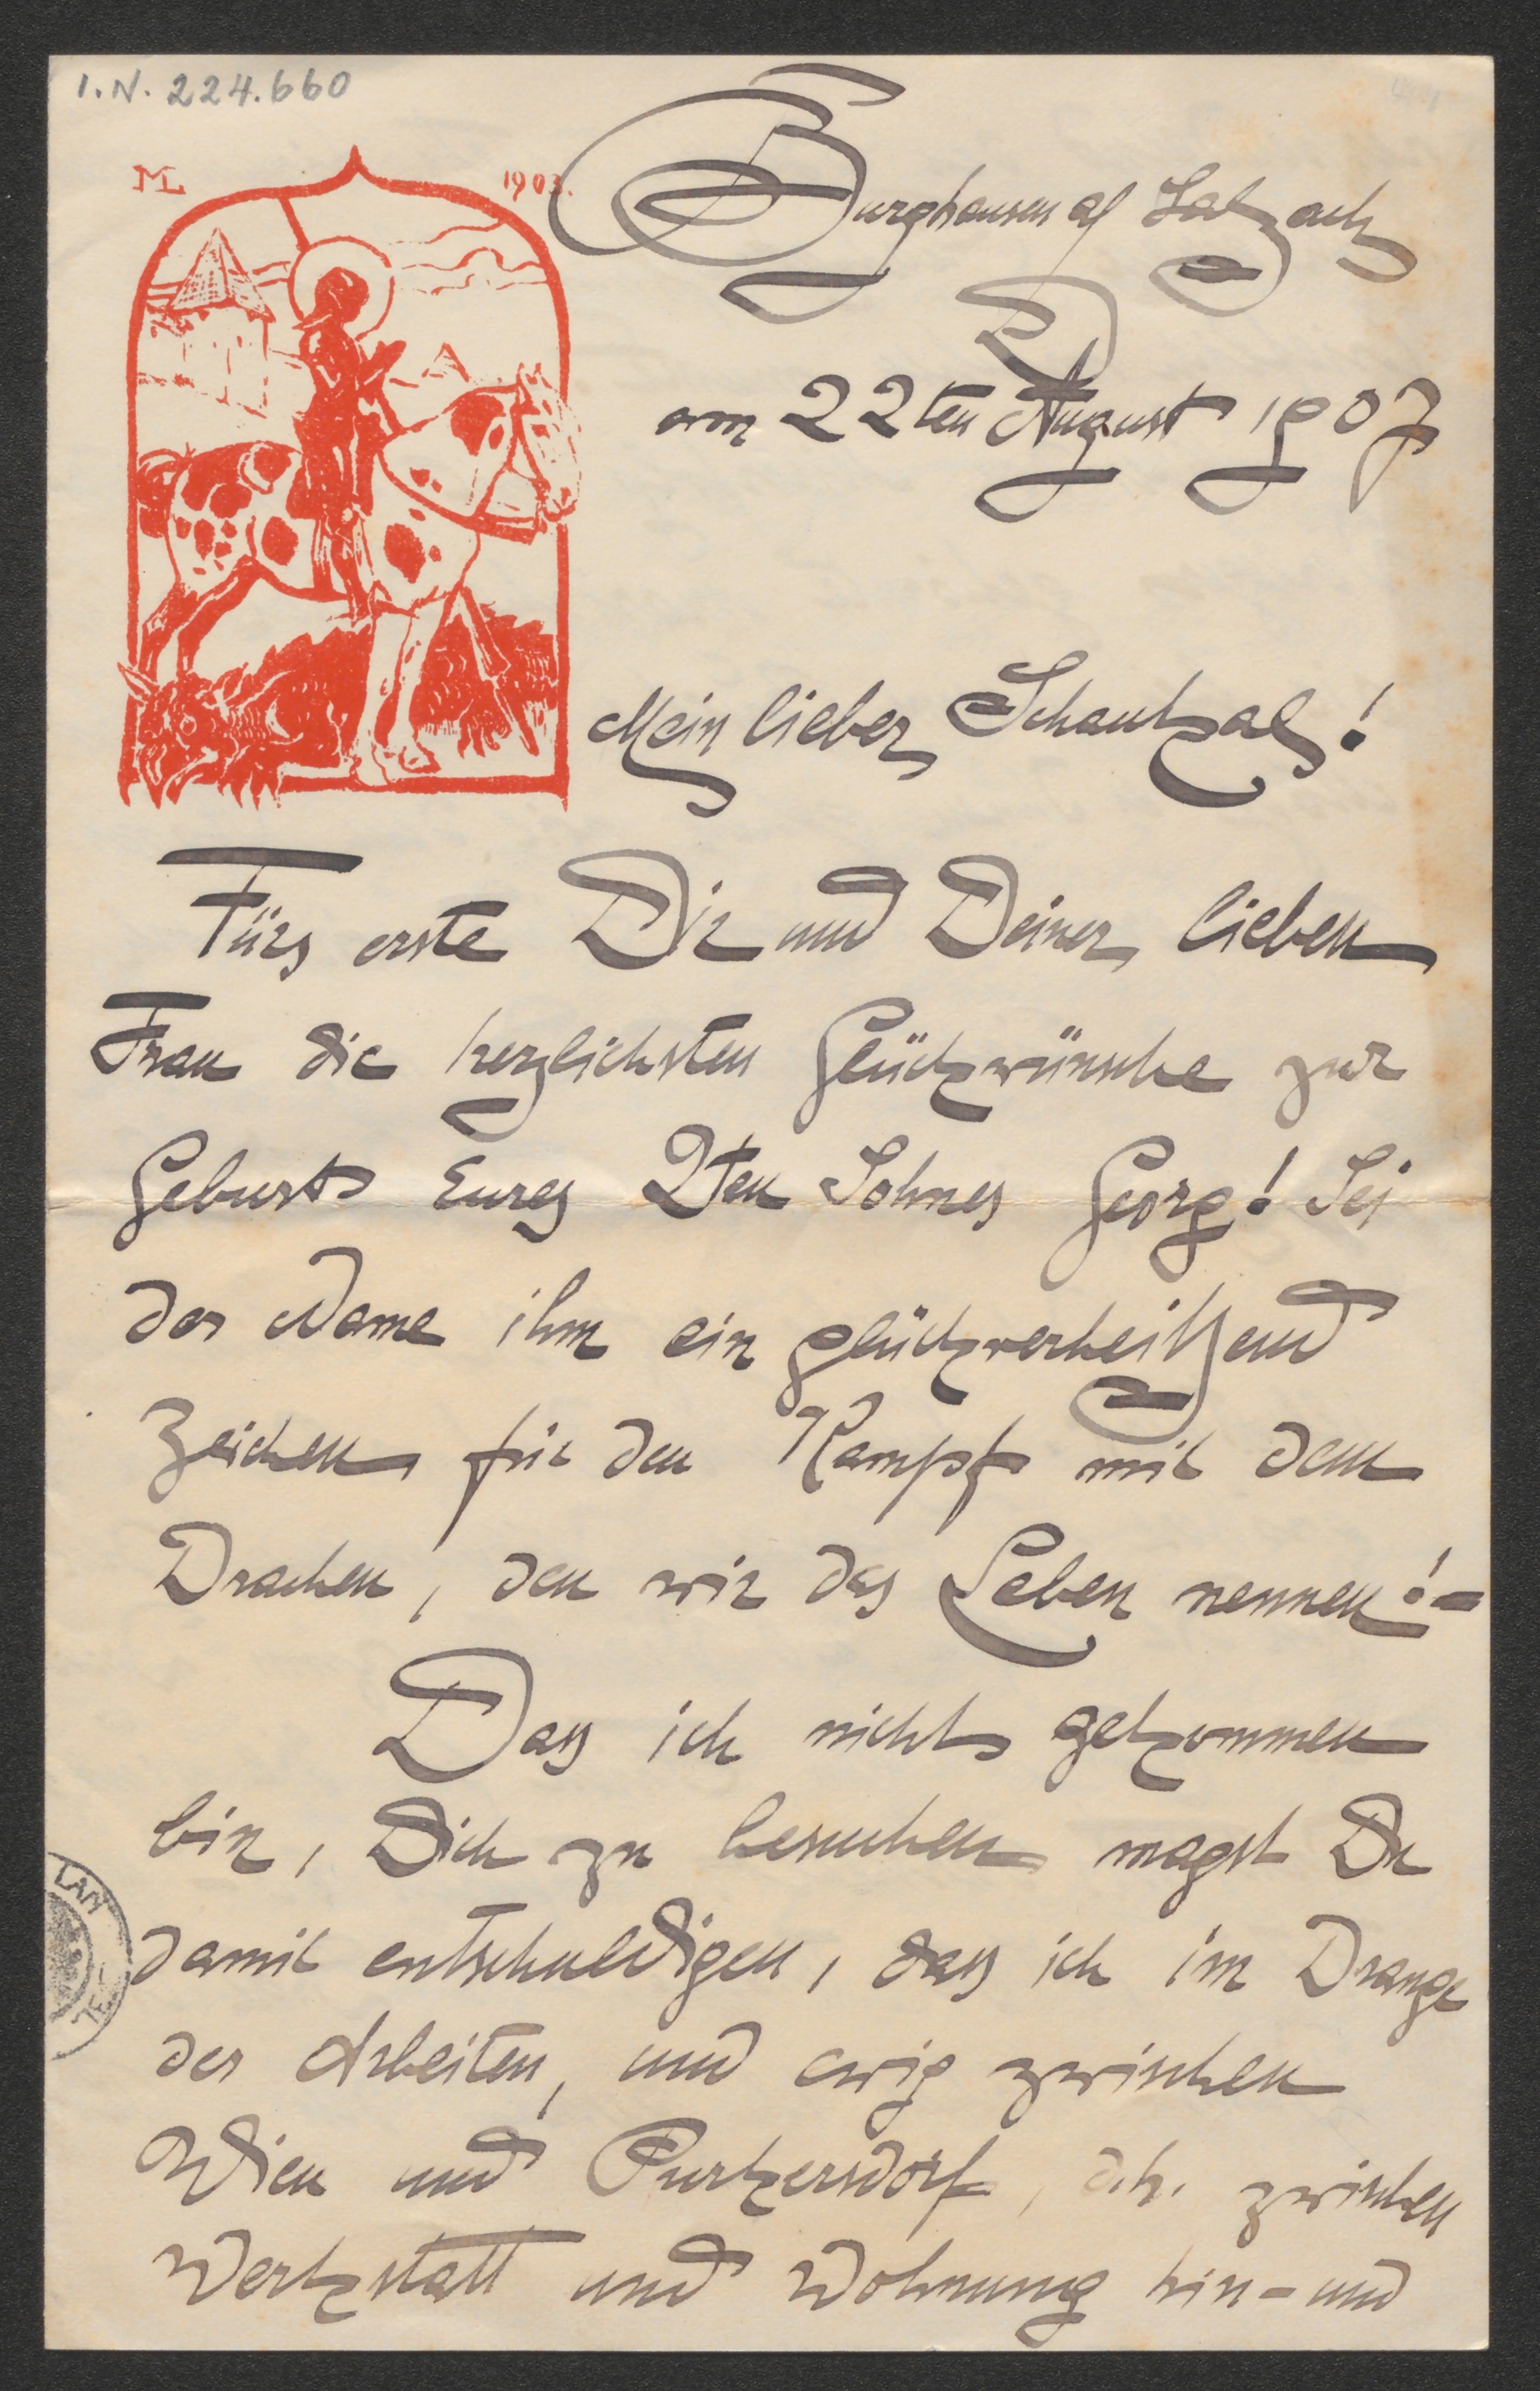 I.N. 224.660
ML 1903.
Burghausen a/ Salzach
am 22ten August 1907
Mein lieber Schaukal!
Fürs erste Dir und Deiner lieben
Frau die herzlichsten Glückwünsche zur
Geburt Eures 2ten Sohnes Georg! Sei
der Name ihm ein glückverheißend
Zeichen für den Kampf mit dem
Drachen, den wir das Leben nennen! -
Dass ich nicht gekommen
bin, Dich zu besuchen magst Du
damit entschuldigen, dass ich im Drange
der Arbeiten, und ewig zwischen
Wien und Purkersdorf, d.h. zwischen
Werkstatt und Wohnung hin- und
LAN